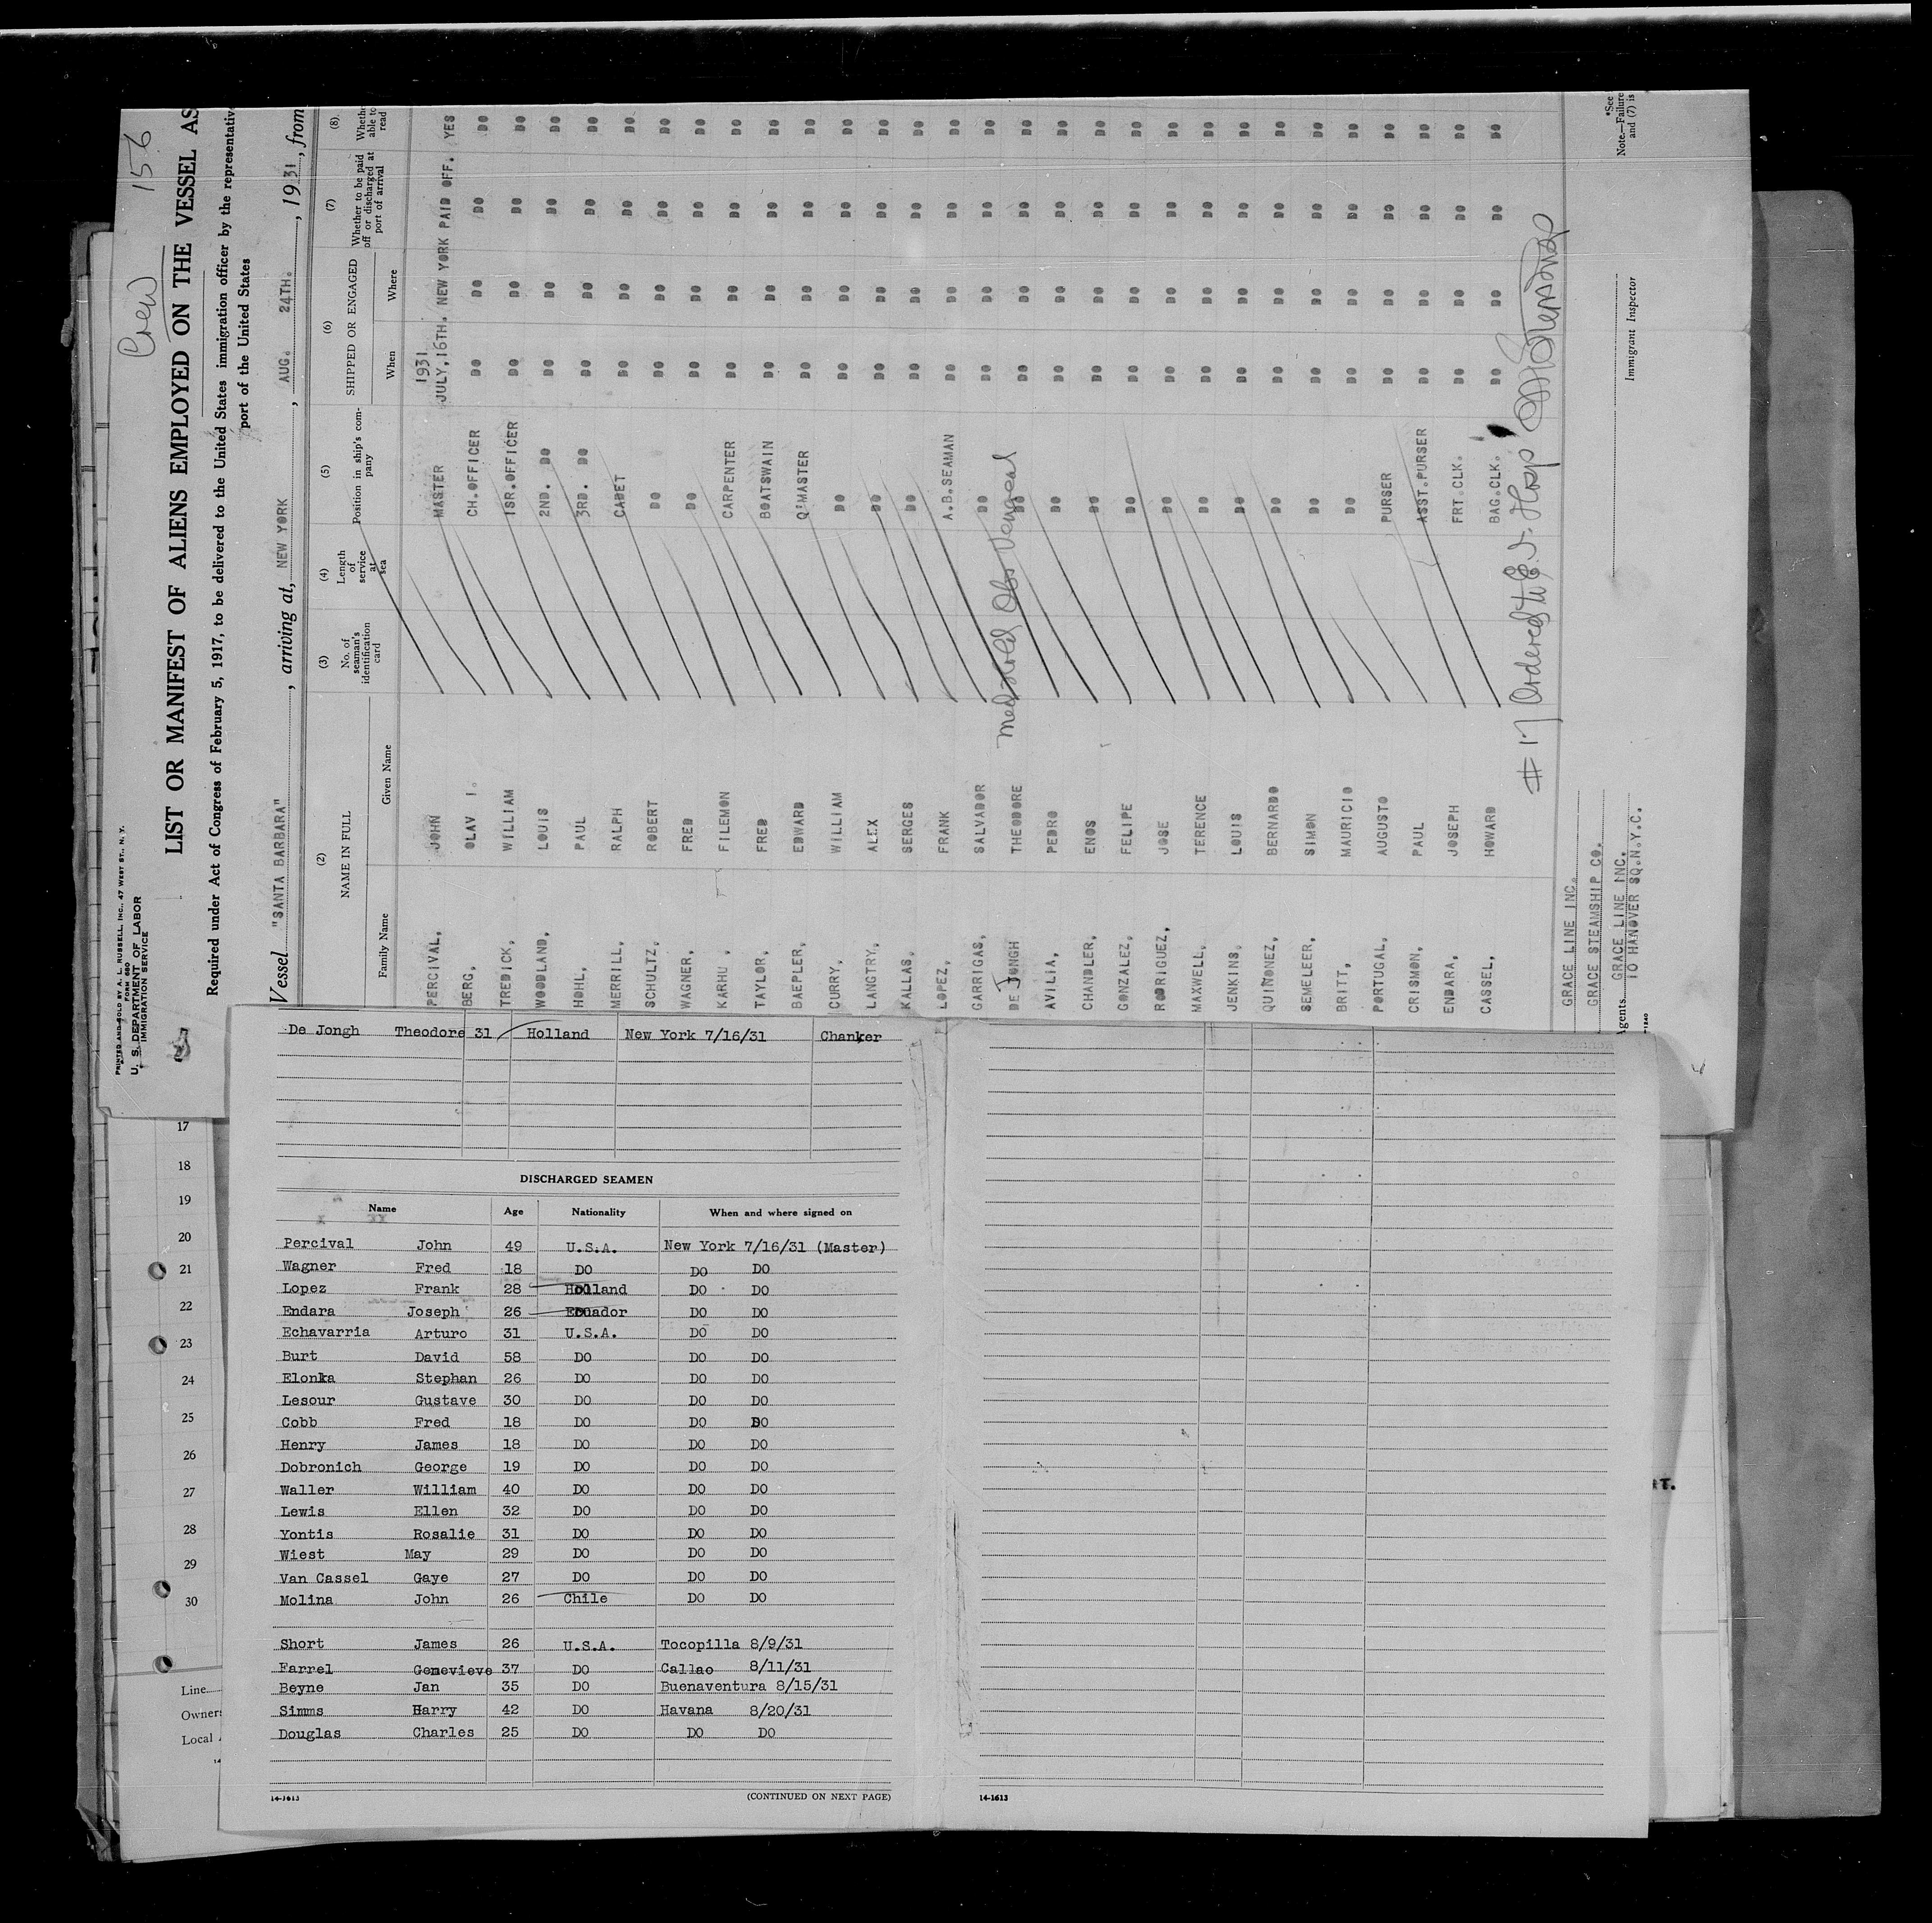 Crew 156
PRINTED AND SOLD BY A. L. RUSSELL, INC., 47 WEST ST., N. Y.
FORM 680
U. S. DEPARTMENT OF LABOR
IMMIGRATION SERVICE
LIST OR MANIFEST OF ALIENS EMPLOYED ON THE VESSEL AS
Required under Act of Congress of February 5, 1917, to be delivered to the United States immigration officer by the representative
port of the United States
Vessel "SANTA BARBARA", arriving at, NEW YORK, AUG. 24TH., 1931, from
(2) (3) (4) (5) (6) (7) (8)
NAME IN FULL No. of seaman's identification card Length of service at sea Position in ship's company SHIPPED OR ENGAGED Whether to be paid off or discharged at port of arrival Whether able to read
Family Name Given Name When Where
1931
PERCIVAL, JOHN MASTER JULY,16TH. NEW YORK PAID OFF. YES
BERG, OLAV I. CH.OFFICER DO DO DO DO
TREDICK, WILLIAM 1SR.OFFICER DO DO DO DO
WOODLAND, LOUIS 2ND. DO DO DO DO DO
HOHL, PAUL 3RD. DO DO DO DO DO
MERRILL, RALPH CADET DO DO DO DO
SCHULTZ, ROBERT DO DO DO DO DO
WAGNER, FRED DO DO DO DO DO
KARHU, FILEMON CARPENTER DO DO DO DO
TAYLOR, FRED BOATSWAIN DO DO DO DO
BAEPLER, EDWARD Q'MASTER DO DO DO DO
CURRY, WILLIAM DO DO DO DO DO
LANGTRY, ALEX DO DO DO DO DO
KALLAS, SERGES DO DO DO DO DO
LOPEZ, FRANK A.B.SEAMAN DO DO DO DO
GARRIGAS, SALVADOR DO DO DO DO DO
DE JONGH THEODORE DO DO DO DO DO
AVILIA, PEDRO DO DO DO DO DO
CHANDLER, ENOS DO DO DO DO DO
GONZALEZ, FELIPE DO DO DO DO DO
RODRIGUEZ, JOSE DO DO DO DO DO
MAXWELL, TERENCE DO DO DO DO DO
JENKINS, LOUIS DO DO DO DO DO
QUINONEZ, BERNARDO DO DO DO DO DO
SEMELEER, SIMON DO DO DO DO DO
BRITT, MAURICIO DO DO DO DO DO
PORTUGAL, AUGUSTO PURSER DO DO DO DO
CRISMON, PAUL ASST.PURSER DO DO DO DO
ENDARA, JOSEPH FRT.CLK. DO DO DO DO
CASSEL, HOWARD BAG.CLK. DO DO DO DO
# 17 Ordered to E.I. Hosp
GRACE LINE INC.
GRACE STEAMSHIP CO.
Agents GRACE LINE INC.
10 HANOVER SQ.N.Y.C.
Immigrant Inspector
*See
Note.—Failure
and (7) is
De Jongh Theodore 31 Holland New York 7/16/31 Chanker
DISCHARGED SEAMEN
Name Age Nationality When and where signed on
Percival John 49 U.S.A. New York 7/16/31 (Master)
Wagner Fred 18 DO DO DO
Lopez Frank 28 Holland DO DO
Endara Joseph 26 Ecuador DO DO
Echavarria Arturo 31 U.S.A. DO DO
Burt David 58 DO DO DO
Elonka Stephan 26 DO DO DO
Lesour Gustave 30 DO DO DO
Cobb Fred 18 DO DO DO
Henry James 18 DO DO DO
Dobronich George 19 DO DO DO
Waller William 40 DO DO DO
Lewis Ellen 32 DO DO DO
Yontis Rosalie 31 DO DO DO
Wiest May 29 DO DO DO
Van Cassel Gaye 27 DO DO DO
Molina John 26 Chile DO DO
Short James 26 U.S.A. Tocopilla 8/9/31
Farrel Genevieve 37 DO Callao 8/11/31
Beyne Jan 35 DO Buenaventura 8/15/31
Simms Harry 42 DO Havana 8/20/31
Douglas Charles 25 DO DO DO
14-1613 (CONTINUED ON NEXT PAGE) 14-1613
17
18
19
20
21
22
23
24
25
26
27
28
29
30
Line
Owners
Local